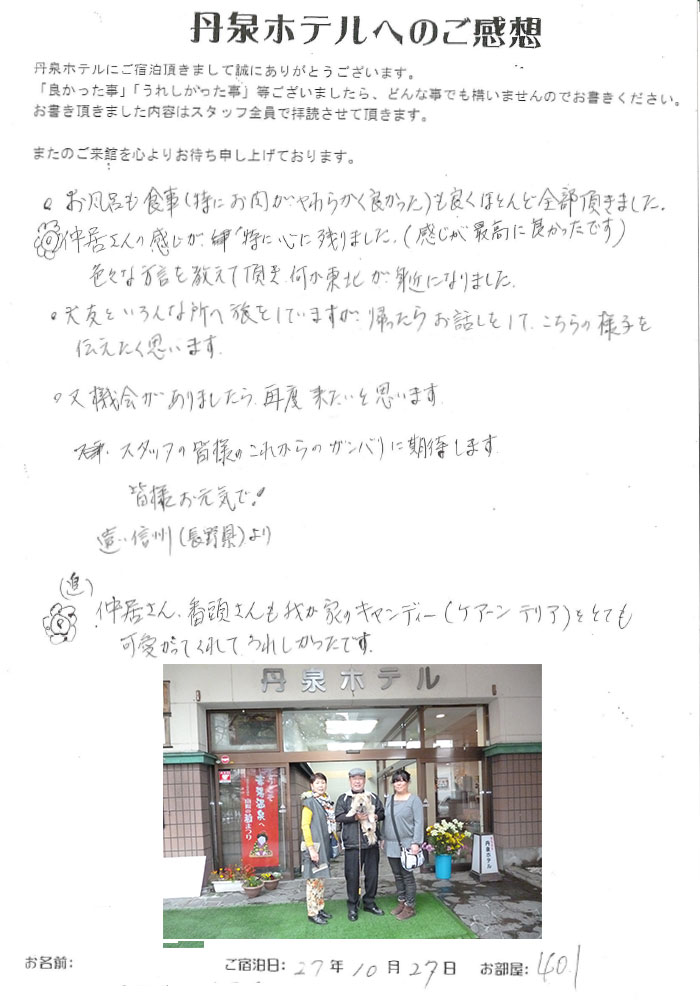 丹泉ホテルへのご感想
丹泉ホテルにご宿泊頂きまして誠にありがとうございます。
「良かった事」「うれしかった事」等ございましたら、どんな事でも構いませんのでお書きください。
お書き頂きました内容はスタッフ全員で拝読させて頂きます。
またのご来館を心よりお待ち申し上げております。
。お風呂も食事(特にお肉がやわらかく良かった)も良くほとんど全部頂きました。
仲居さんの感じが 特に心に残りました。(感じが最高に良かったです)
色々な方言を教えて頂き、何か東北が身近になりました。
。犬友といろんな所へ旅をしていますが、帰ったらお話しをして、こちらの様子を
伝えたく思います。
。又機会がありましたら、再度来たいと思います。
スタッフの皆様のこれからのガンバリに期待します
皆様お元気で!
遠い信州(長野県)より
(追)
仲居さん、番頭さんも我が家のキャンディー(ケアーンテリア)をとても
可愛がってくれてうれしかったです。
丹泉ホテル
温泉へ
まつり
丹泉ホテル
お名前:
ご宿泊日: 27年 10月 27日 お部屋: 401